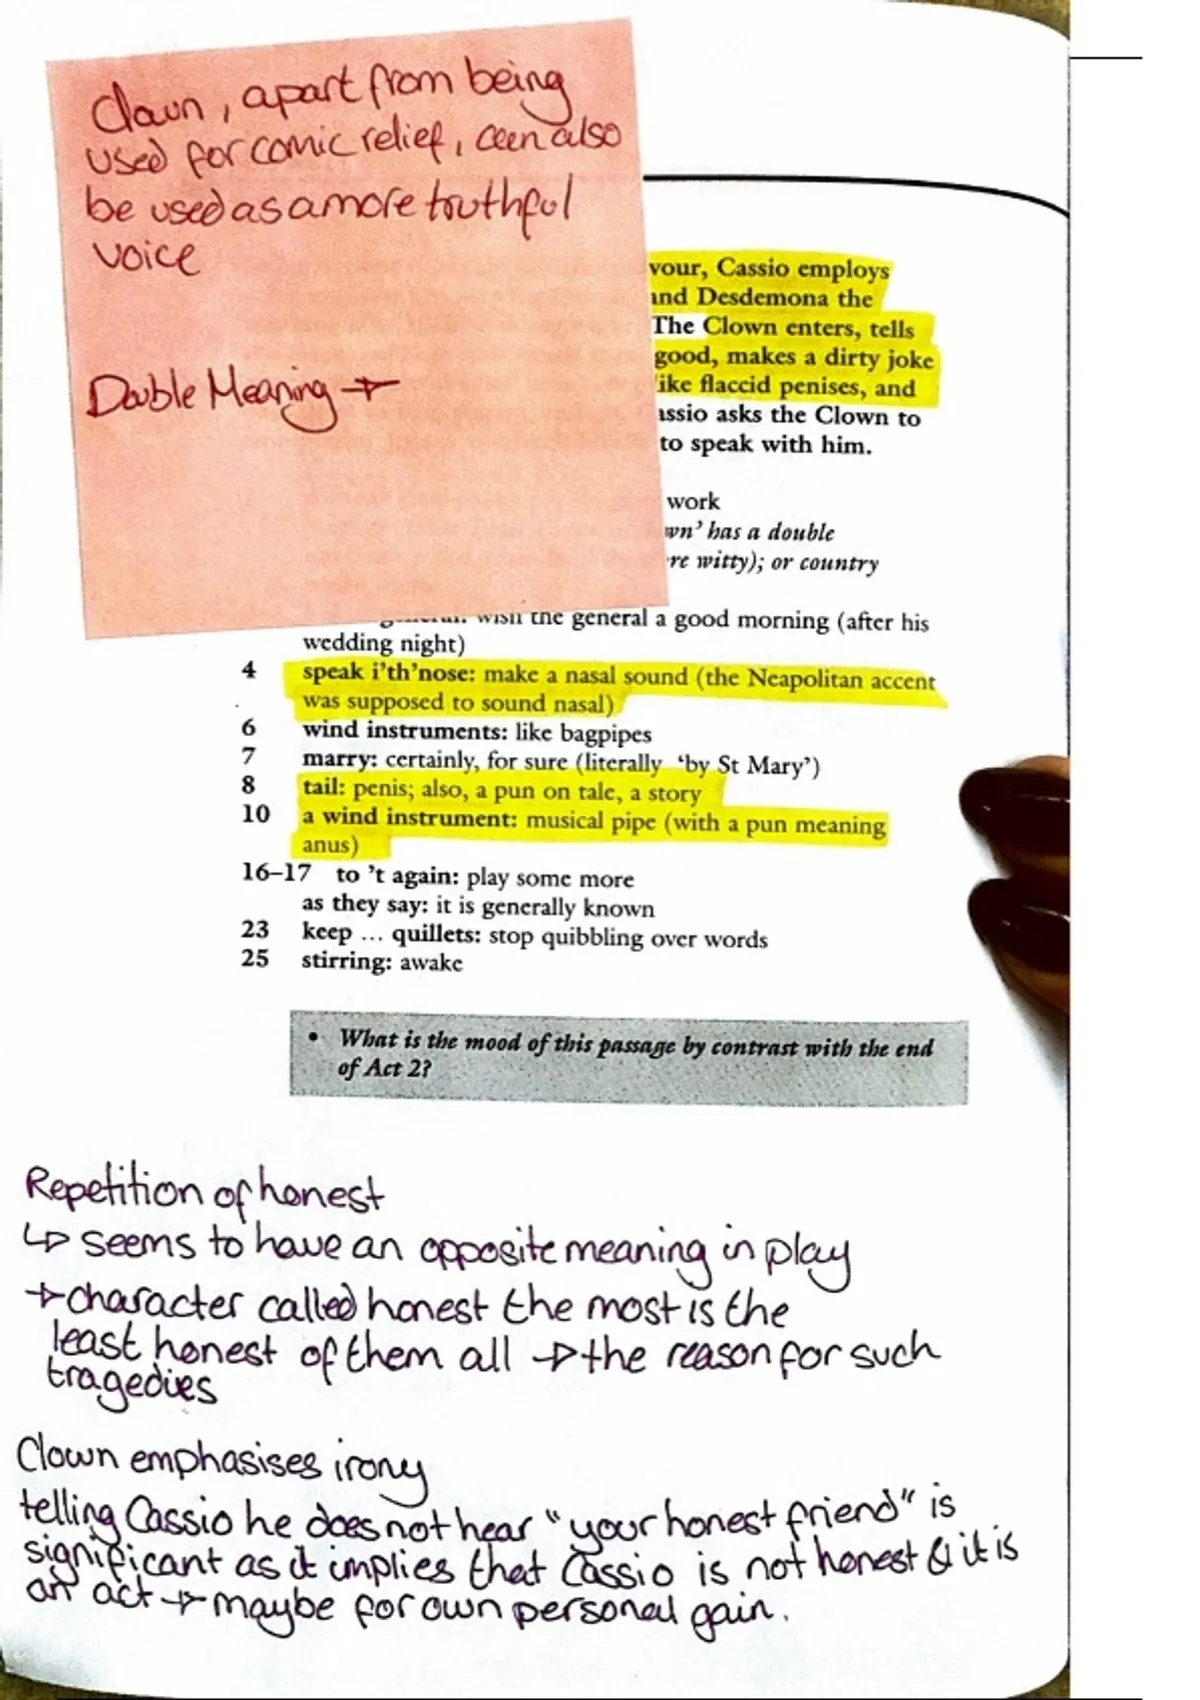 Clown, apart from being
used for comic relief, can also
be used as a more truthful
voice
Double Meaning →
vour, Cassio employs
and Desdemona the
The Clown enters, tells
good, makes a dirty joke
like flaccid penises, and
assio asks the Clown to
to speak with him.
work
wn' has a double
re witty); or country
wish the general a good morning (after his
wedding night)
4 speak i'th'nose: make a nasal sound (the Neapolitan accent
was supposed to sound nasal)
6 wind instruments: like bagpipes
7 marry: certainly, for sure (literally 'by St Mary')
8 tail: penis; also, a pun on tale, a story
10 a wind instrument: musical pipe (with a pun meaning
anus)
16–17 to 't again: play some more
as they say: it is generally known
23 keep ... quillets: stop quibbling over words
25 stirring: awake
• What is the mood of this passage by contrast with the end
of Act 2?
Repetition of honest
↳ seems to have an opposite meaning in play
→ character called honest the most is the
least honest of them all → the reason for such
tragedies
Clown emphasises irony
telling Cassio he does not hear "your honest friend" is
significant as it implies that Cassio is not honest & it is
an act → maybe for own personal gain.